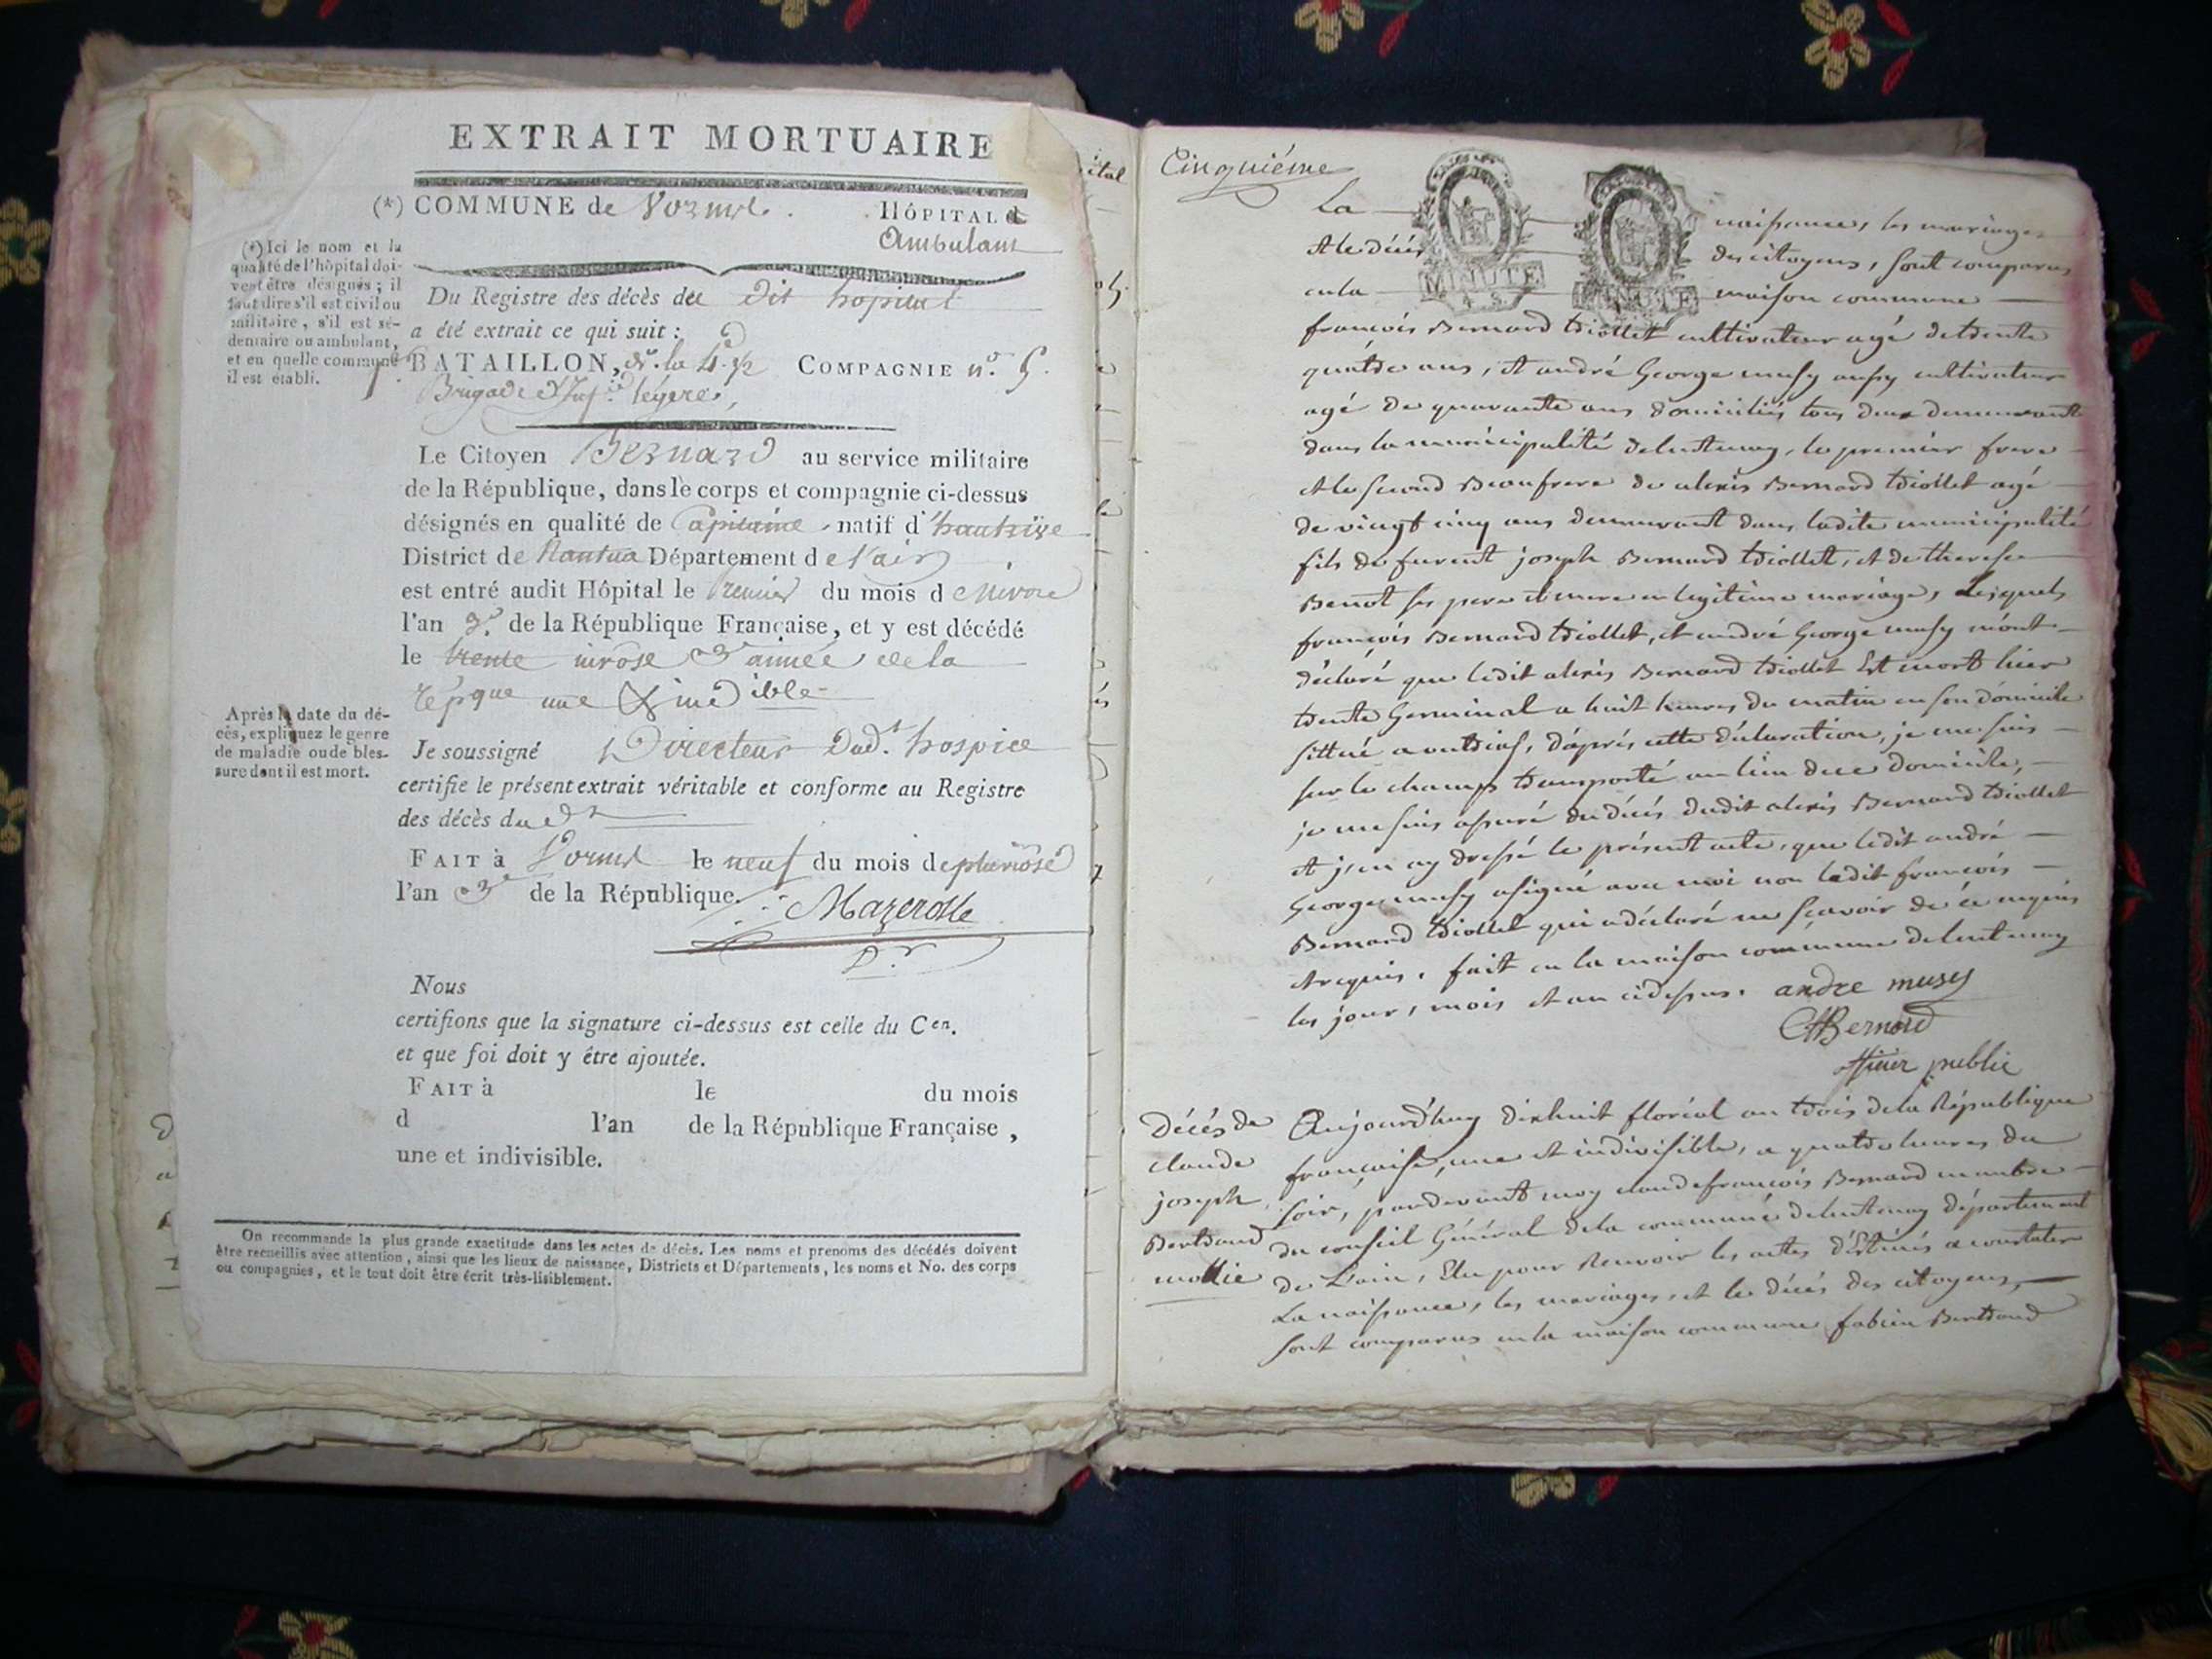 EXTRAIT MORTUAIRE
(*) COMMUNE de HÔPITAL
Ambulant
(*) Ici le nom et la
qualité de l'hôpital doi-
vent être désignés ; il
faut dire s'il est civil ou
militaire, s'il est sé-
dentaire ou ambulant,
et en quelle commune
il est établi.
Du Registre des décès de dit hopital
a été extrait ce qui suit :
BATAILLON, de la 4e COMPAGNIE n.o 5.
Brigade d'Inf.ie légere,
Le Citoyen Bernard au service militaire
de la République, dans le corps et compagnie ci-dessus
désignés en qualité de Capitaine natif d'hautrive
District de Nantua Département de l'ain
est entré audit Hôpital le Premier du mois d nivose
l'an 3e de la République Française, et y est décédé
le trente nivôse 3e année de la
répque une & indible
Après la date du dé-
cès, expliquez le genre
de maladie ou de bles-
sure dont il est mort.
Je soussigné Directeur dud.t hospice
certifie le présent extrait véritable et conforme au Registre
des décès du dt
FAIT à le neuf du mois de pluviôse
l'an 3e de la République.
Mazerolle
D.r
Nous
certifions que la signature ci-dessus est celle du Cen.
et que foi doit y être ajoutée.
FAIT à le du mois
d l'an de la République Française,
une et indivisible.
On recommande la plus grande exactitude dans les actes de décès. Les noms et prenoms des décédés doivent
être recueillis avec attention, ainsi que les lieux de naissance, Districts et Départements, les noms et No. des corps
ou compagnies, et le tout doit être écrit très-lisiblement.
Cinquiéme
La naissances, les mariages
et le décés des citoyens, sont comparus
en la maison commune
MINUTE
MINUTE
francois Bernard triollet cultivateur agé de trente
quatre ans, et andré George musy aussy cultivateur
agé de quarante ans domiciliés tous deux demeurant
dans la municipalité de lentenay, le premier frere
et le second Beaufrere de alexis Bernard triollet agé
de vingt cinq ans demeurant dans ladite municipalité
fils de furent joseph Bernard triollet, et de therese
Benot ses pere et mere en legitime mariage, lesquels
françois Bernard triollet, et andré George musy m'ont
déclaré que ledit alexis Bernard triollet Est mort hier
trente Germinal a huit heures du matin en son domicile
sittué a, d'aprés cette déclaration, je me suis
sur le champs transporté au lieu de ce domicile,
je me suis assuré du décés dudit alexis Bernard triollet
et j'en ay dressé le présent acte, que ledit andré
George musy a signé avec moi non ledit francois
Bernard triollet qui a déclaré ne sçavoir de ce enquis
et requis. fait en la maison commune de lentenay
les jour, mois et an cidessus. andre musy
Bernard
officier public
Décés de
claude
joseph
Bertrand
mollie
Aujourd'huy dixhuit floréal an trois de la République
françaisse, une et indivisible, a quatre heures du
soir, pardevant moy claude francois Bernard membre
du conseil Général de la commune de lentenay département
de L'ain, Elu pour Recevoir les actes d'Estinés a constater
La naissances, les mariages, et le décés des citoyens,
sont comparus en la maison commune fabien Bertrand